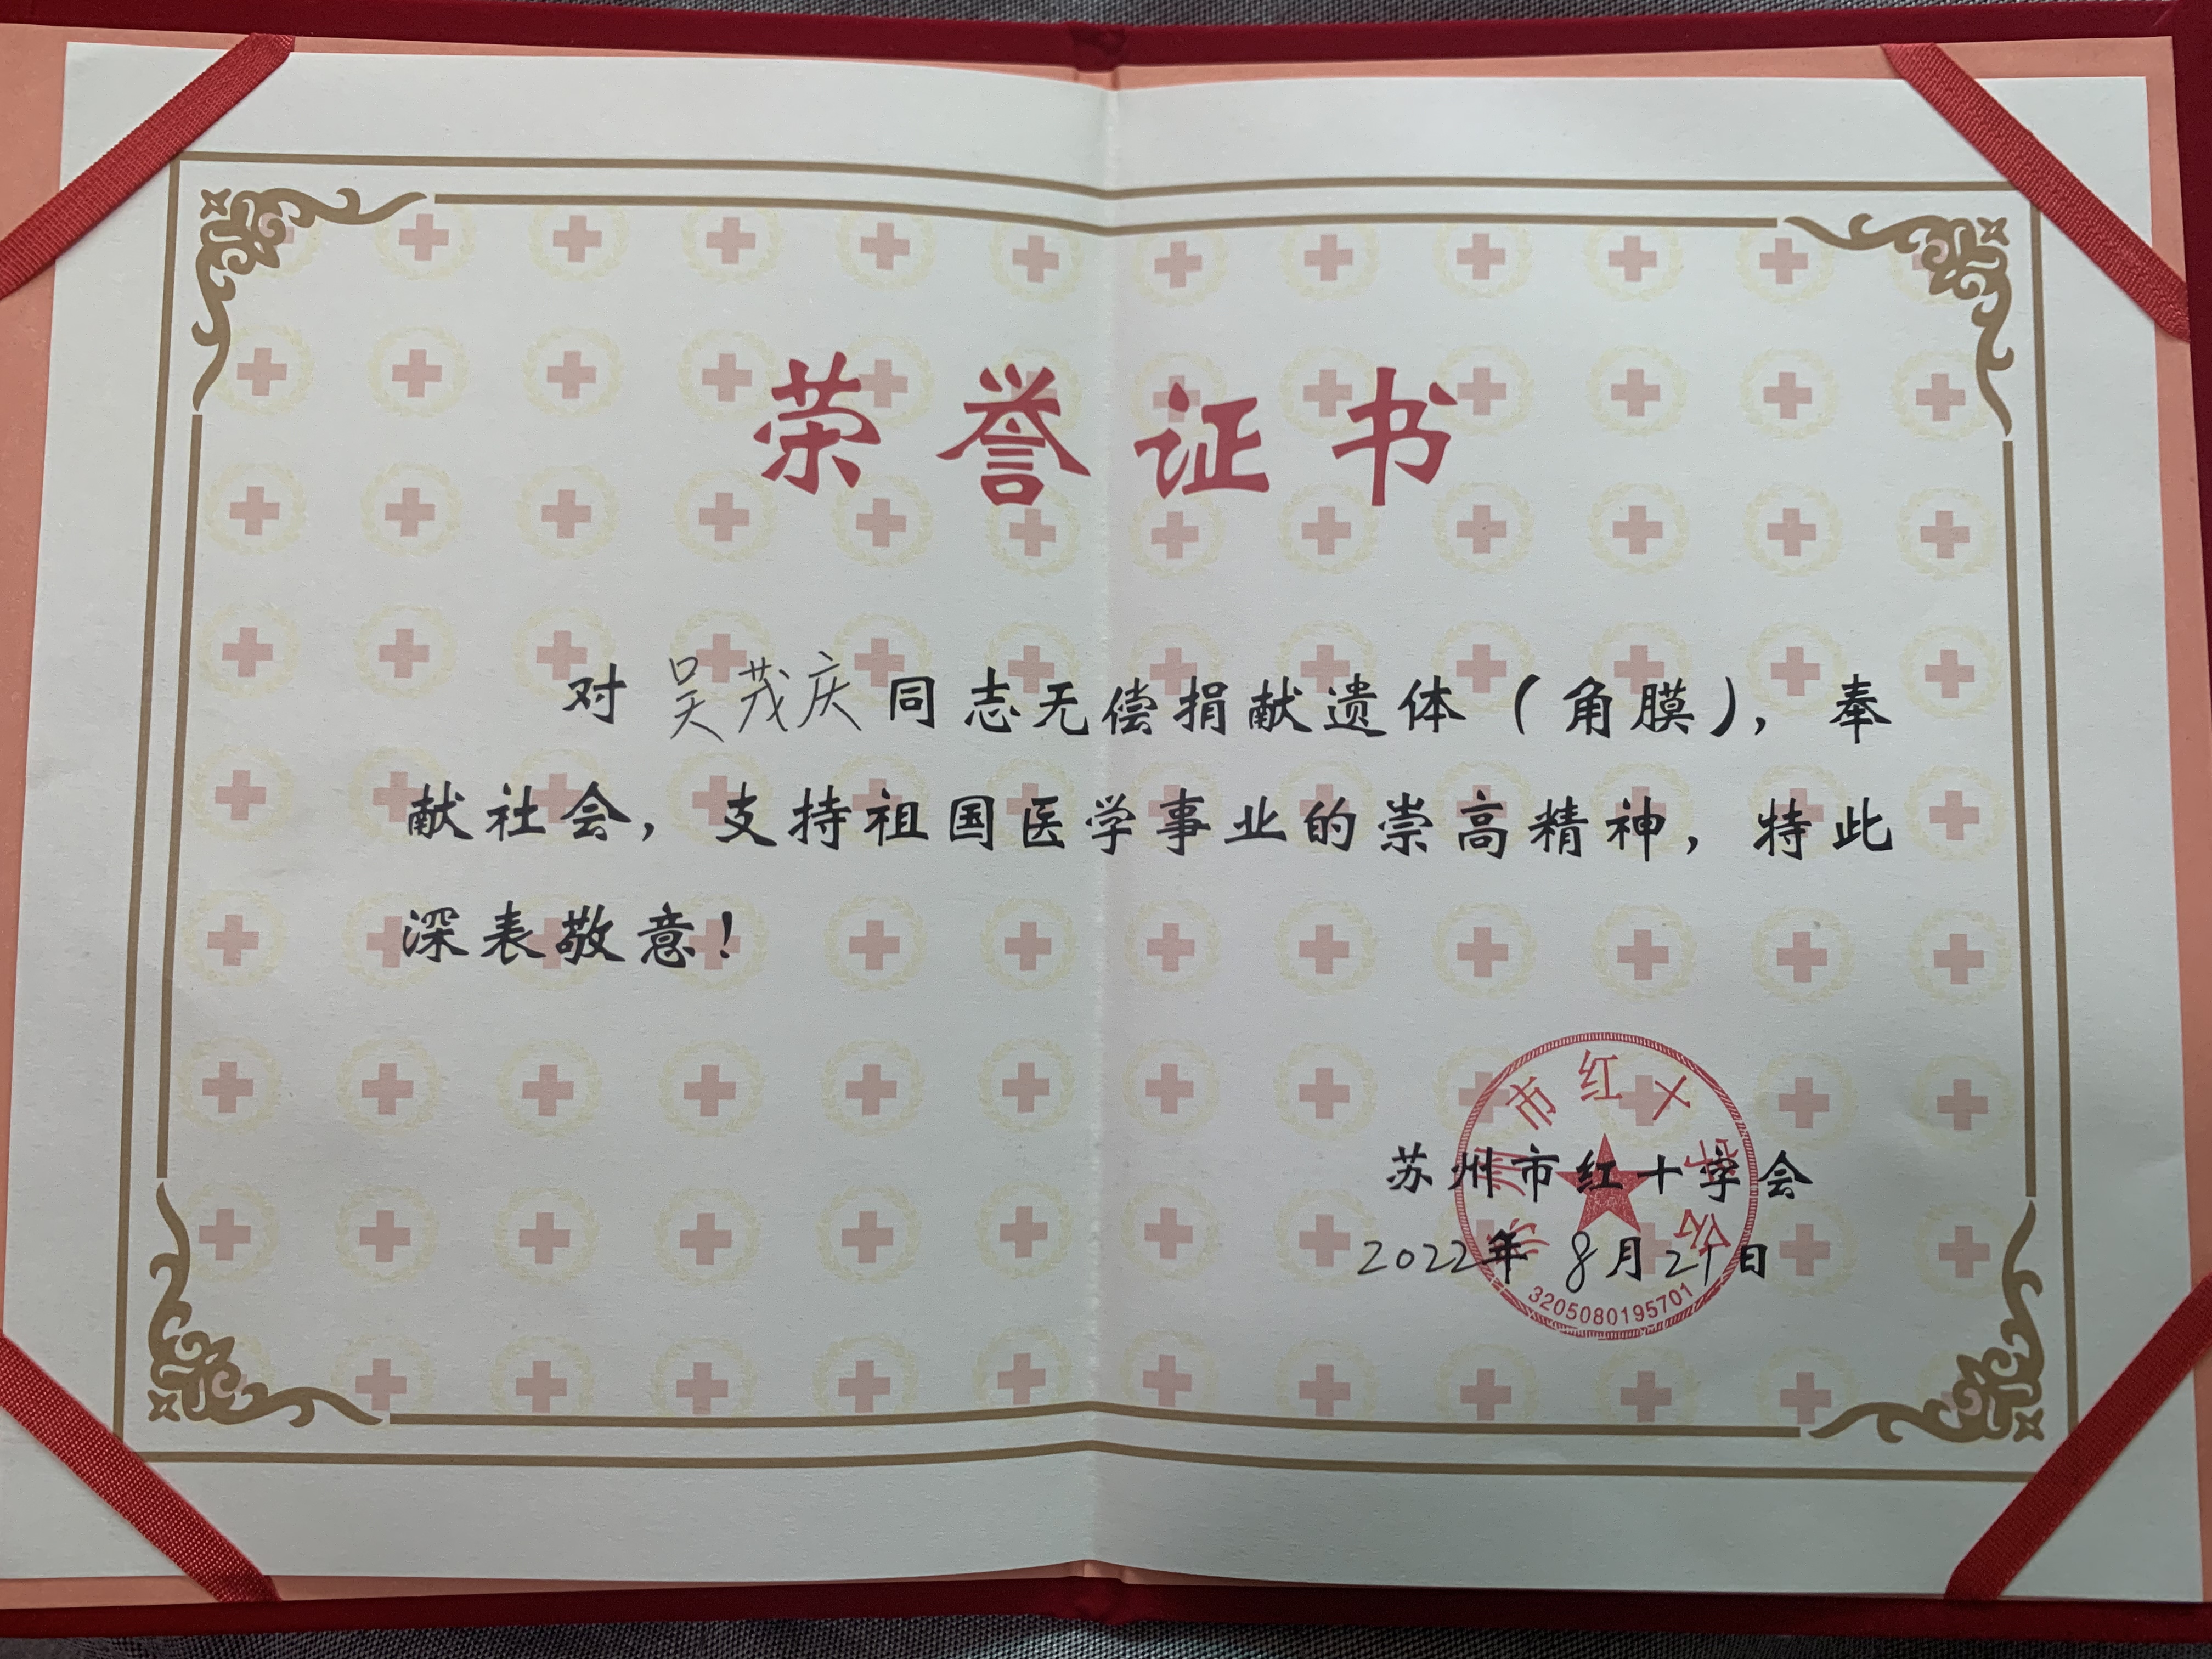 荣誉证书
对 吴茂庆 同志无偿捐献遗体（角膜），奉
献社会，支持祖国医学事业的崇高精神，特此
深表敬意！
苏州市红十字会
2022年 8月21日
苏州市红十字会
3205080195701